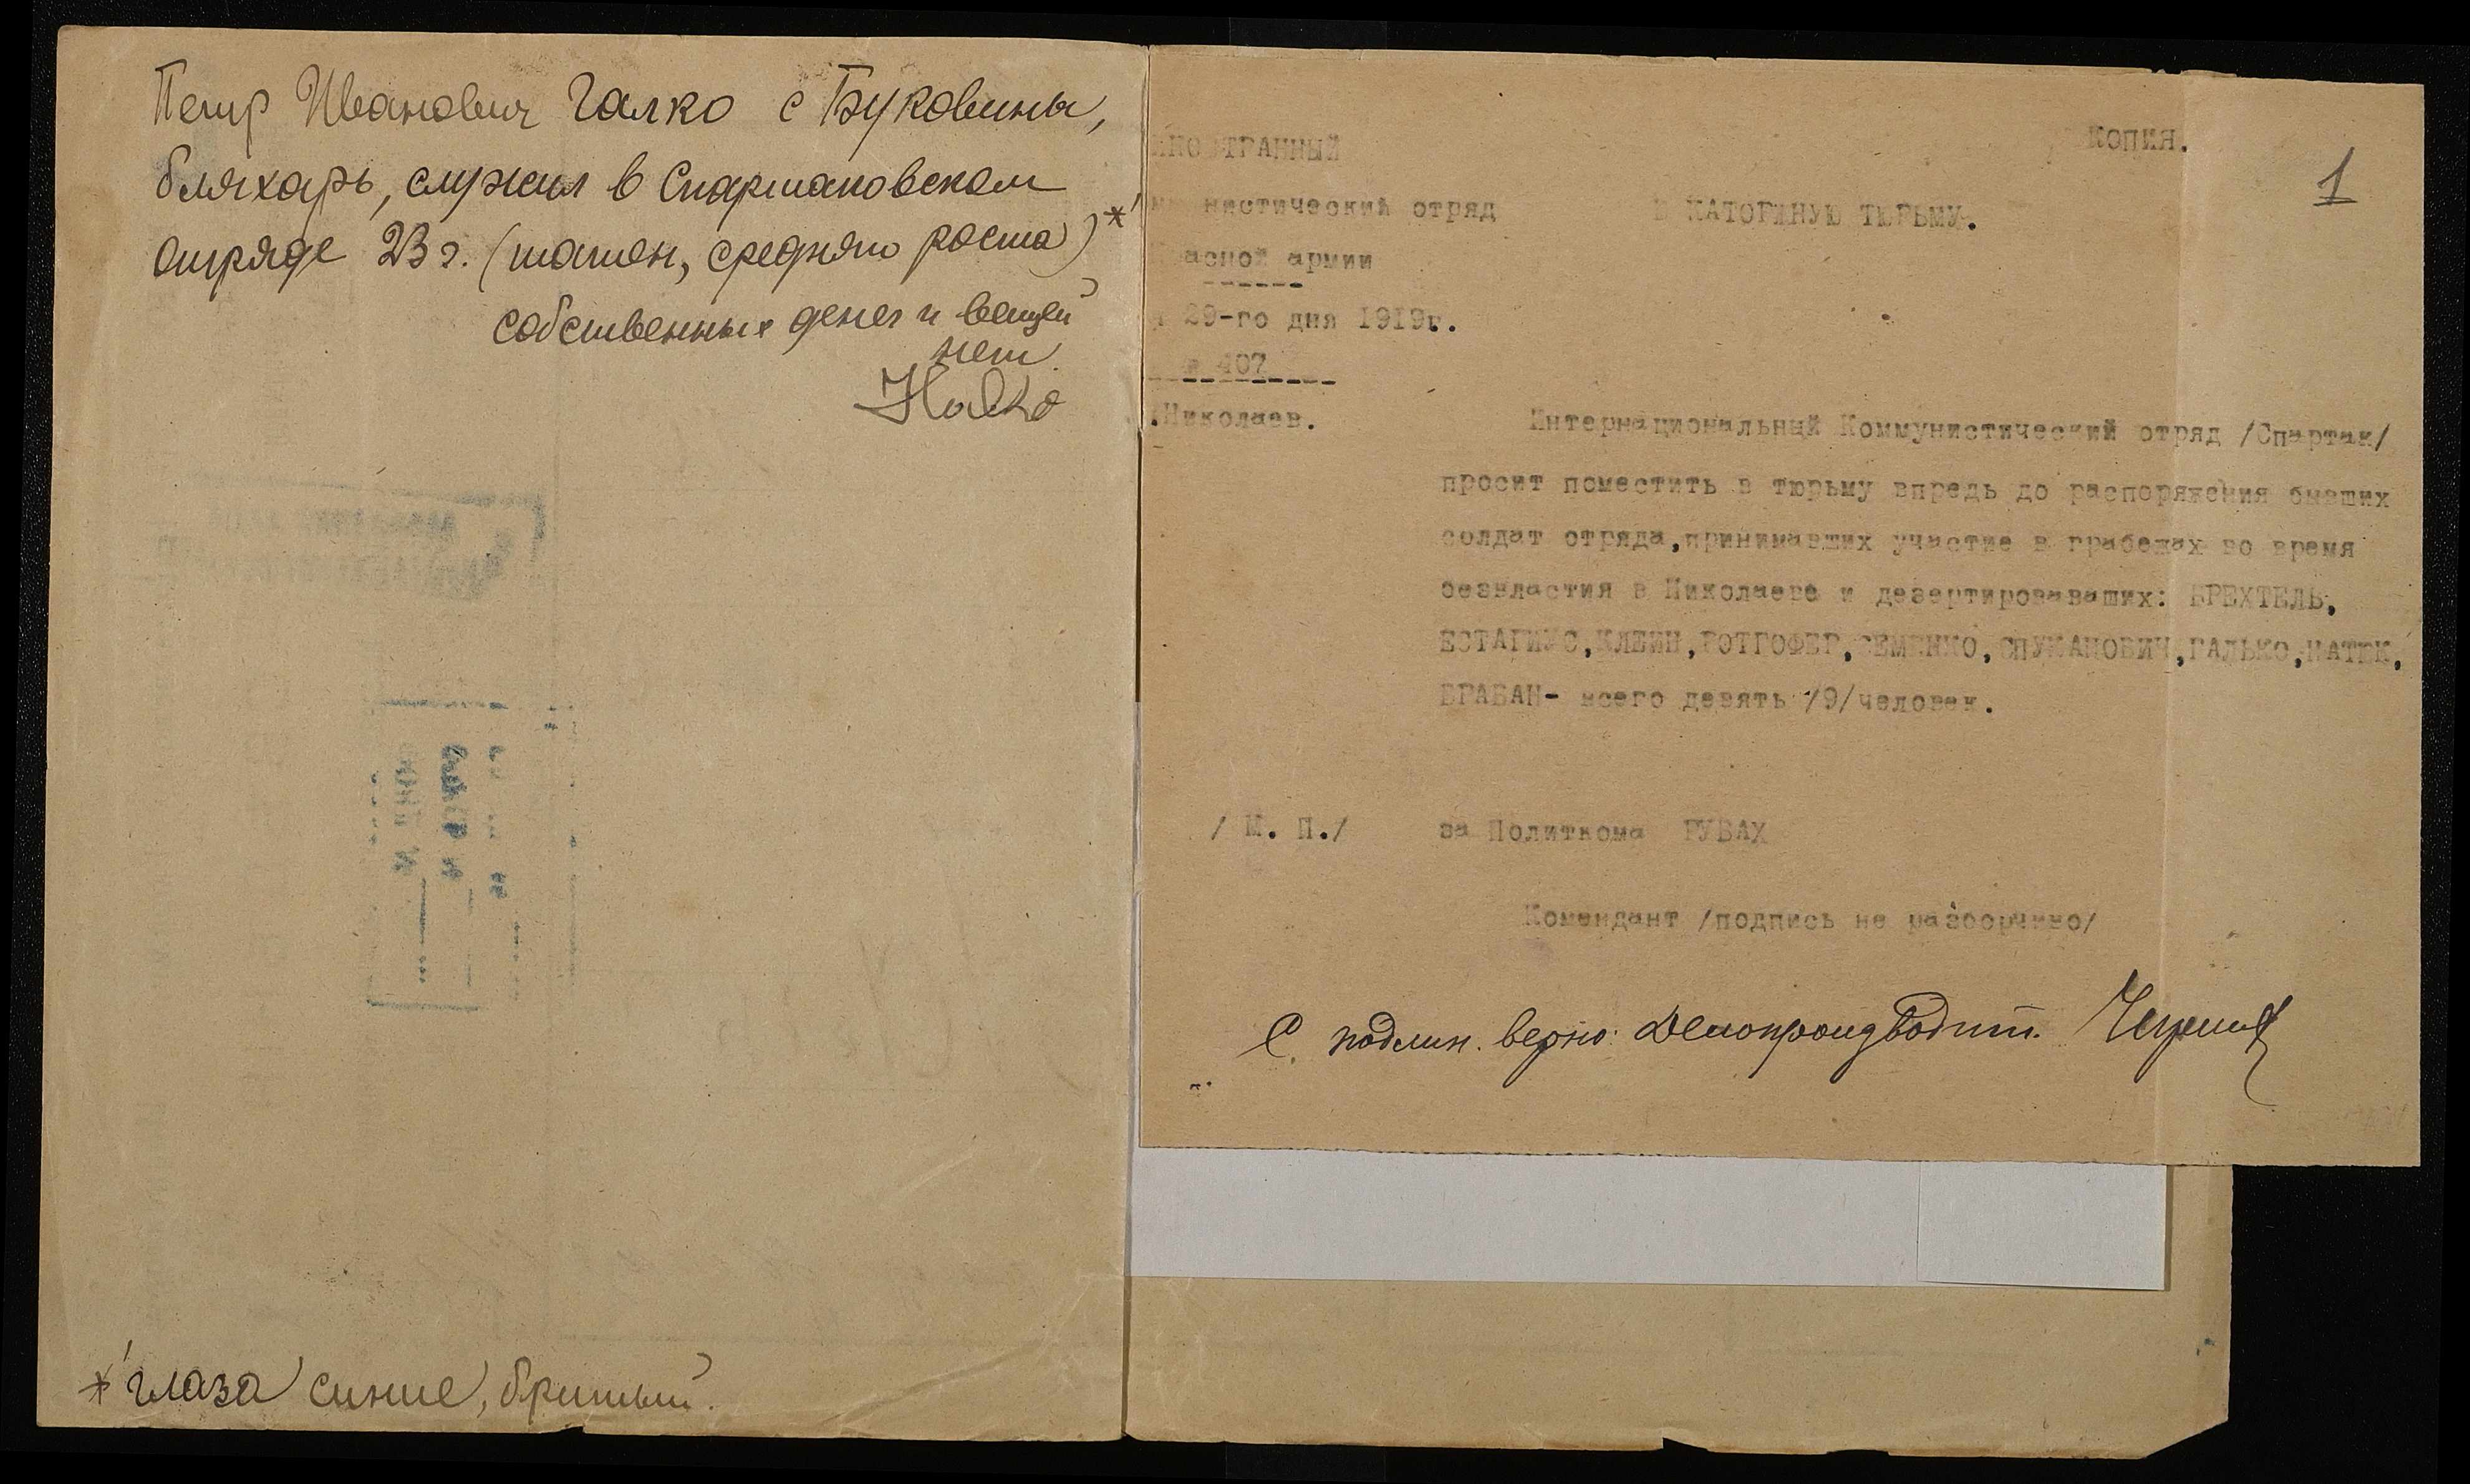 Петр Иванович Галко с Буковины,
бляхарь, служил в Спартаковском
отряде 23 г. (шатен, средняго роста)*
собственных денег и вещей
нет.
* глаза синие, бритый.
КОПИЯ.
1
ИНОСТРАННЫЙ
нистический отряд
В КАТОРЖНУЮ ТЮРЬМУ.
асной армии
29-го дня 1919г.
№ 407
.Николаев.
Интернациональный Коммунистический отряд /Спартак/
просит поместить в тюрьму впредь до распоряжения бывших
солдат отряда,принимавших участие в грабежах во время
безвластия в Николаеве и дезертировавших: БРЕХТЕЛЬ,
ЕСТАГИУС,КЛЕИН,РОТГОФЕР,СЕМЕНКО,СПУЖАНОВИЧ,ГАЛЬКО,МАТЕК,
БРАБАН- всего девять /9/человек.
/ М. П./ за Политкома РУБАХ
Комендант /подпись не разборчиво/
С подлин. верно: Делопроизводит.